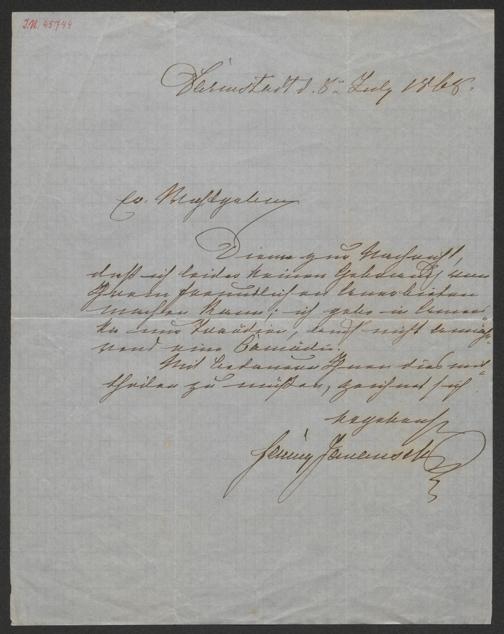 J.N. 45744
Darmstadt d. 8ten July 1868.
Ew. Wohlgeboren
Diene zur Nachricht,
daß ich leider keinen Gebrauch von
Ihrem freundlichen
machen kann; ich gebe in Ameri-
ka nur Tragödien, und nicht
eine Comödie.
Mit bedauern Ihnen dies mit-
theilen zu müßen, zeichnet sich
ergebenst
Fanny Janauschek